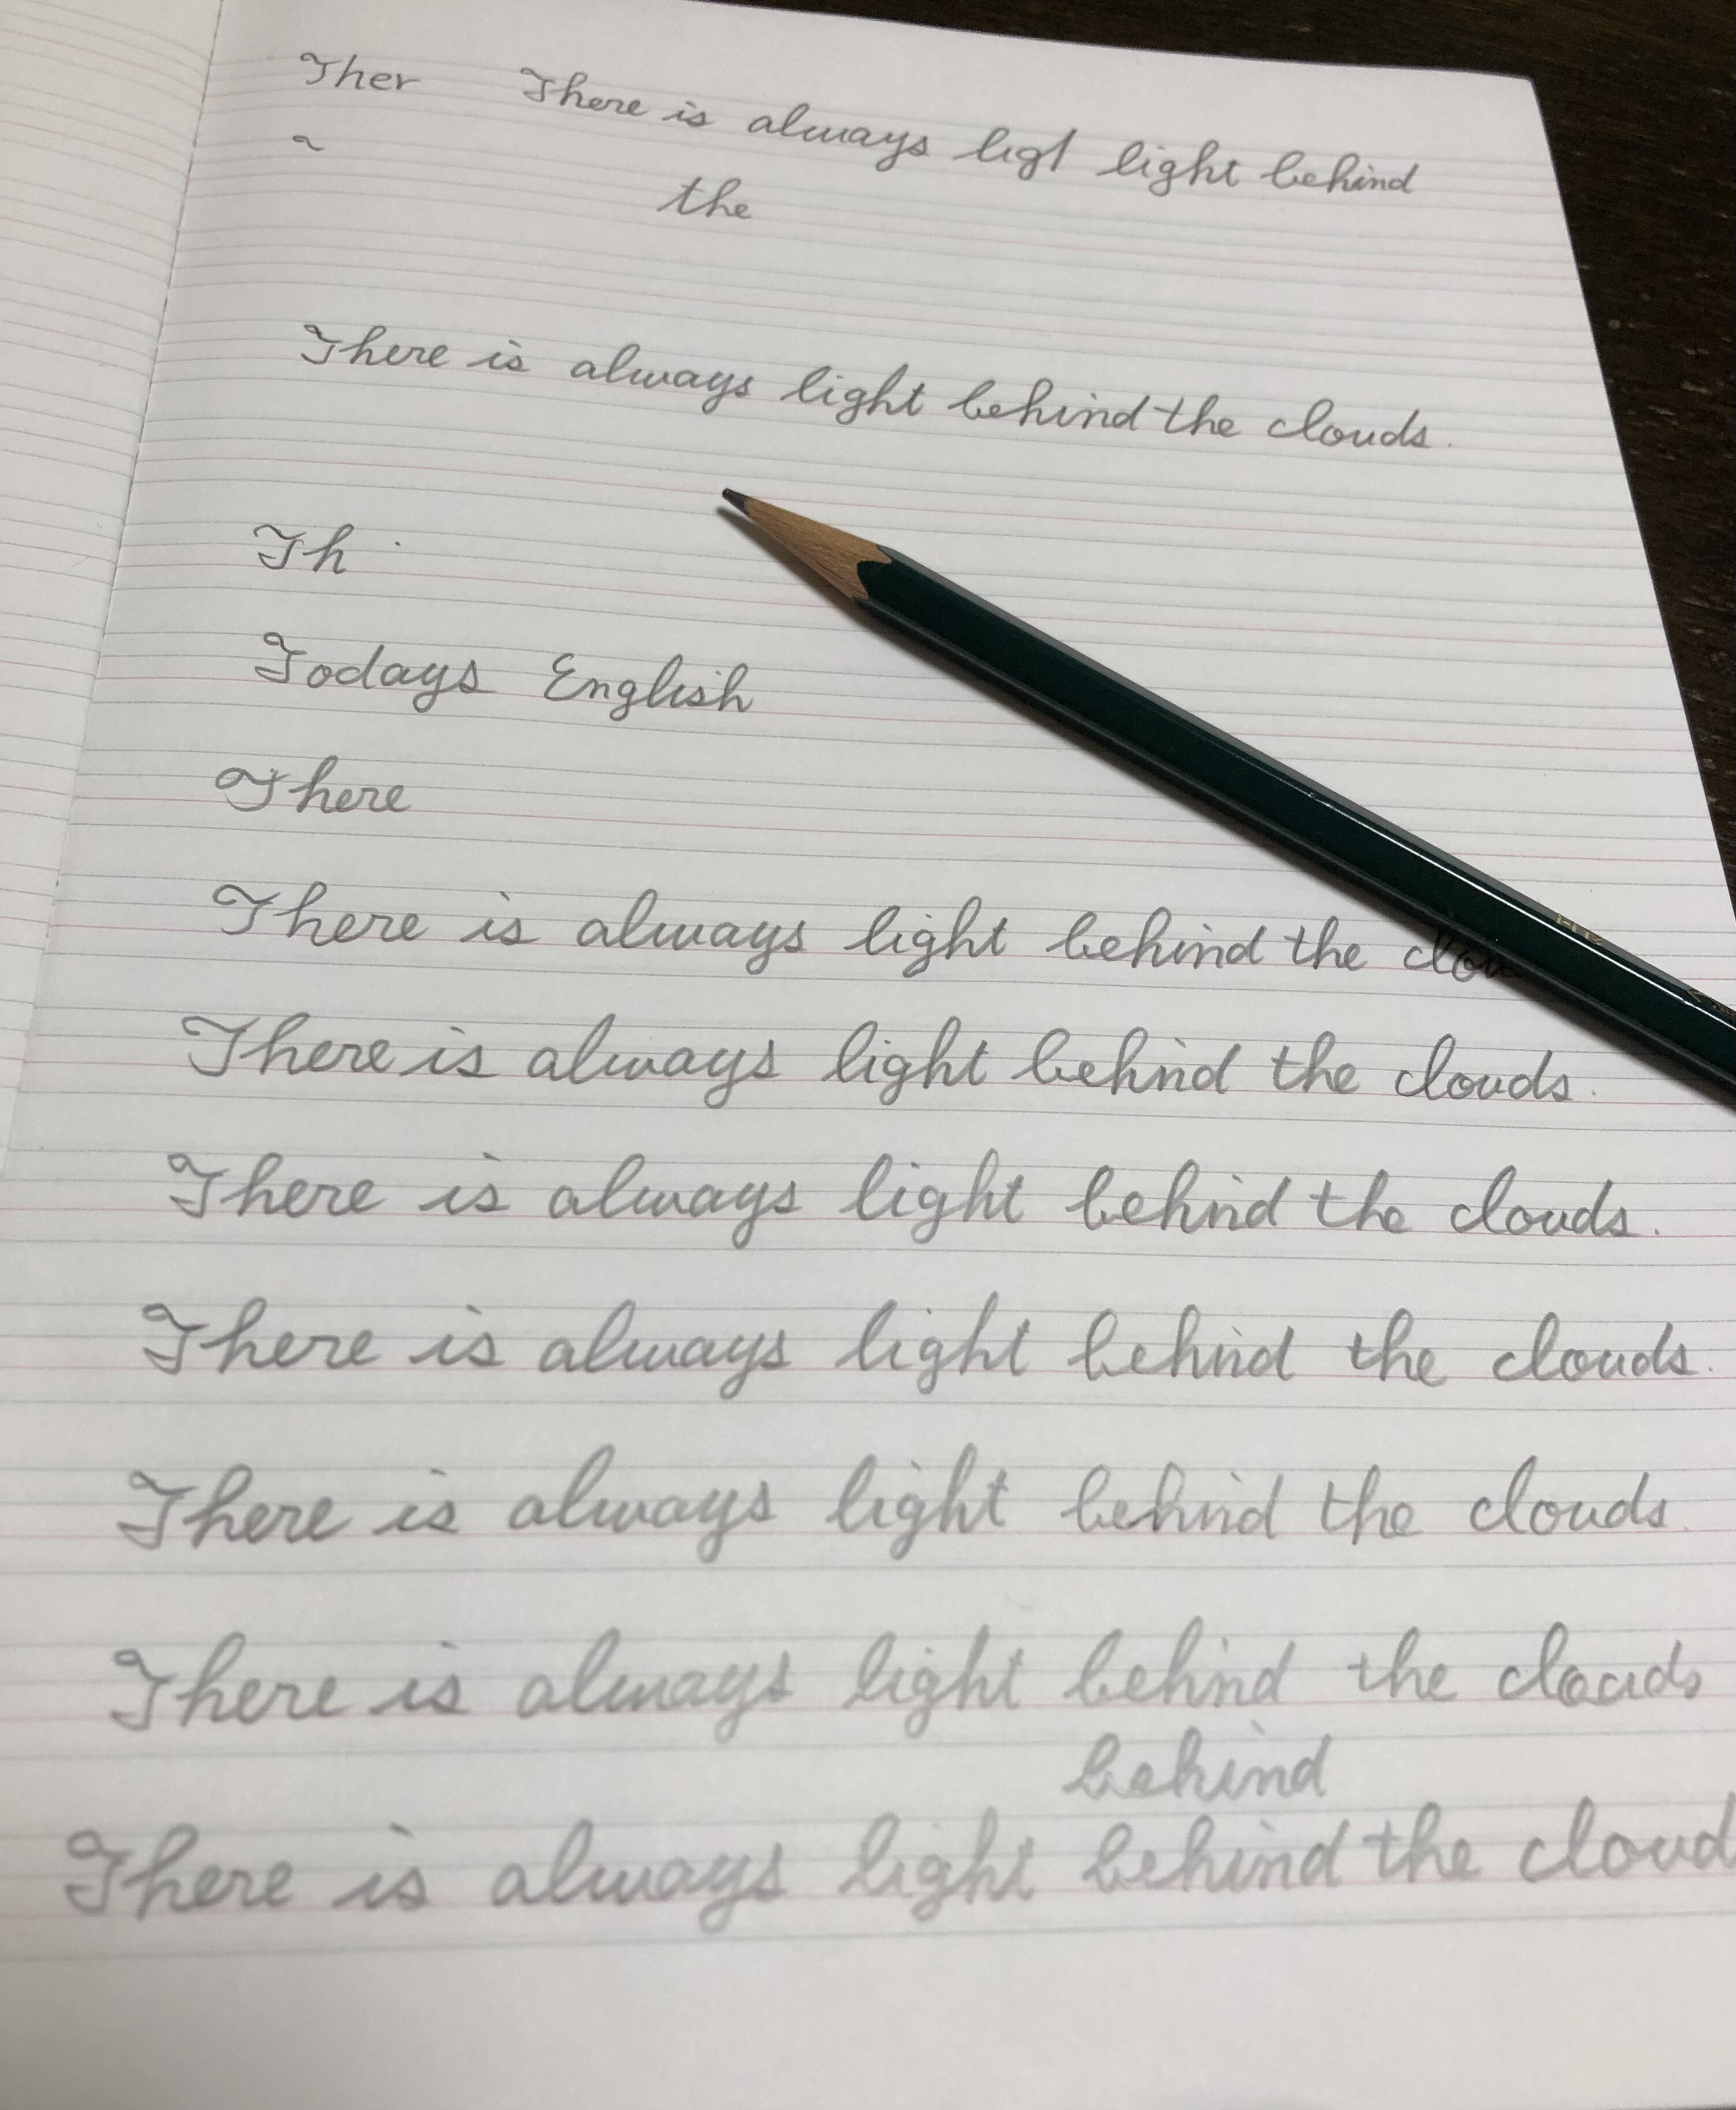 Ther There is always ligt light behind
a
the
There is always light behind the clouds.
Th
Todays English
There
There is always light behind the clou
There is always light behind the clouds.
There is always light behind the clouds.
There is always light behind the clouds.
There is always light behind the clouds.
There is always light behind the clouds
behind
There is always light behind the cloud